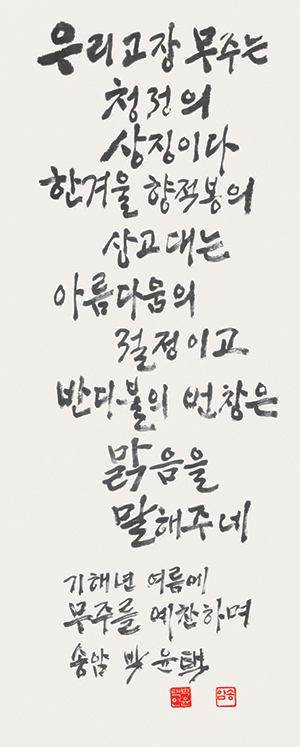 우리고장 무주는
청정의
상징이다
한겨울 향적봉의
상고대는
아름다움의
절정이고
반디불의 번창은
맑음을
말해주네
기해년 여름에
무주를 예찬하며
송암 박윤택